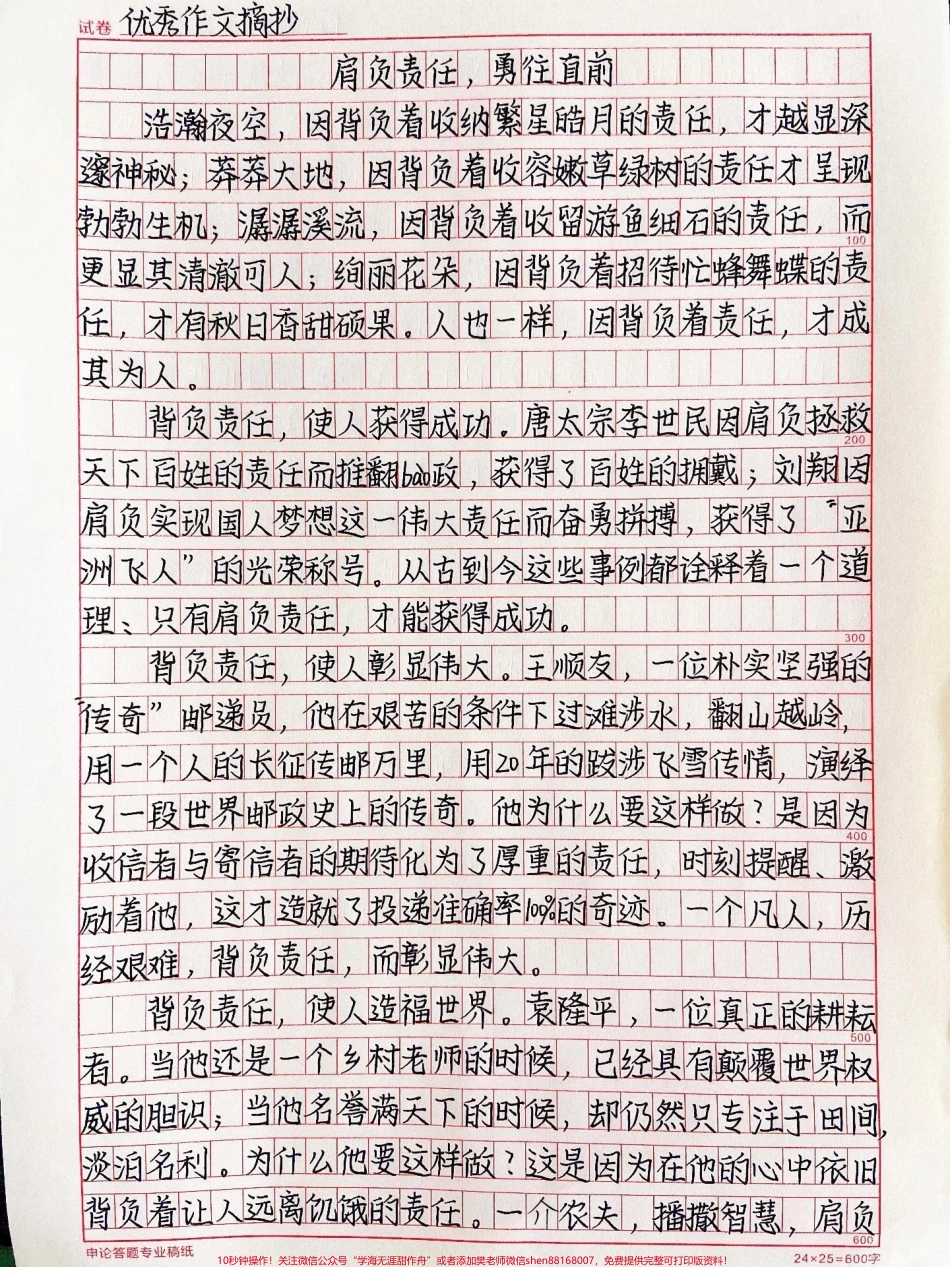 试卷 优秀作文摘抄
肩负责任，勇往直前
浩瀚夜空，因背负着收纳繁星皓月的责任，才越显深
邃神秘；莽莽大地，因背负着收容嫩草绿树的责任才呈现
勃勃生机；潺潺溪流，因背负着收留游鱼细石的责任，而
100
更显其清澈可人；绚丽花朵，因背负着招待忙蜂舞蝶的责
任，才有秋日香甜硕果。人也一样，因背负着责任，才成
其为人。
背负责任，使人获得成功。唐太宗李世民因肩负拯救
200
天下百姓的责任而推翻bào政，获得了百姓的拥戴；刘翔因
肩负实现国人梦想这一伟大责任而奋勇拼搏，获得了“亚
洲飞人”的光荣称号。从古到今这些事例都诠释着一个道
理：只有肩负责任，才能获得成功。
300
背负责任，使人彰显伟大。王顺友，一位朴实坚强的
“传奇”邮递员，他在艰苦的条件下过滩涉水，翻山越岭，
用一个人的长征传邮万里，用20年的跋涉飞雪传情，演绎
了一段世界邮政史上的传奇。他为什么要这样做？是因为
400
收信者与寄信者的期待化为了厚重的责任，时刻提醒、激
励着他，这才造就了投递准确率100%的奇迹。一个凡人，历
经艰难，背负责任，而彰显伟大。
背负责任，使人造福世界。袁隆平，一位真正的耕耘
500
者。当他还是一个乡村老师的时候，已经具有颠覆世界权
威的胆识；当他名誉满天下的时候，却仍然只专注于田间，
淡泊名利。为什么他要这样做？这是因为在他的心中依旧
背负着让人远离饥饿的责任。一介农夫，播撒智慧，肩负
600
申论答题专业稿纸
24×25=600字
10秒钟操作！关注微信公众号“学海无涯甜作舟”或者添加樊老师微信shen88168007，免费提供完整可打印版资料！